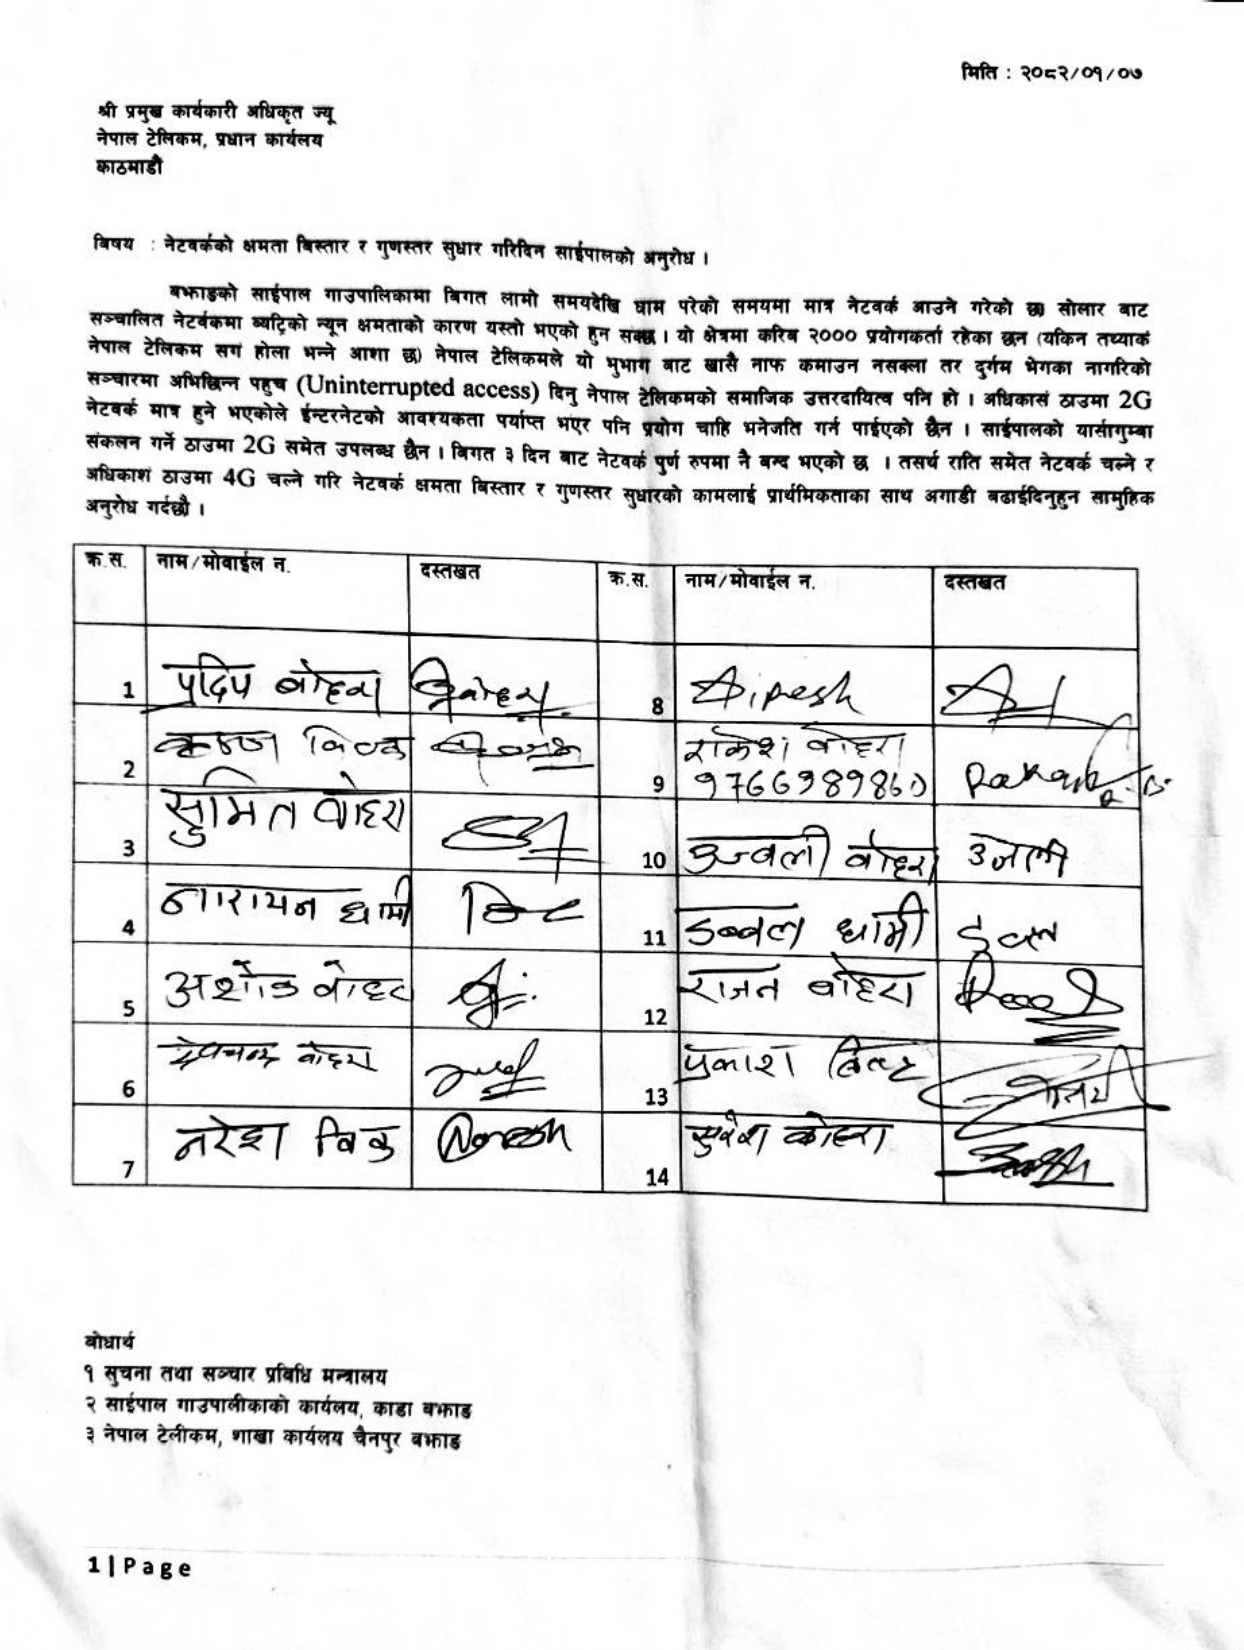 मिति : २०८२/०१/०७
श्री प्रमुख कार्यकारी अधिकृत ज्यू
नेपाल टेलिकम, प्रधान कार्यलय
काठमाडौ
बिषय : नेटवर्कको क्षमता बिस्तार र गुणस्तर सुधार गरिदिन साईपालको अनुरोध ।
बझाङको साईपाल गाउपालिकामा बिगत लामो समयदेखि घाम परेको समयमा मात्र नेटवर्क आउने गरेको छ। सोलार बाट
सञ्चालित नेटर्वकमा ब्यट्रिको न्यून क्षमताको कारण यस्तो भएको हुन सक्छ । यो क्षेत्रमा करिब २००० प्रयोगकर्ता रहेका छन (यकिन तथ्याकं
नेपाल टेलिकम सगं होला भन्ने आशा छ) नेपाल टेलिकमले यो भुभाग बाट खासै नाफ कमाउन नसक्ला तर दुर्गम भेगका नागरिको
सञ्चारमा अभिछिन्न पहुच (Uninterrupted access) दिनु नेपाल टेलिकमको समाजिक उत्तरदायित्व पनि हो । अधिकासं ठाउमा 2G
नेटवर्क मात्र हुने भएकोले ईन्टरनेटको आवश्यकता पर्याप्त भएर पनि प्रयोग चाहि भनेजति गर्न पाईएको छैन । साईपालको यार्सागुम्बा
संकलन गर्ने ठाउमा 2G समेत उपलब्ध छैन । बिगत ३ दिन बाट नेटवर्क पुर्ण रुपमा नै बन्द भएको छ । तसर्थ राति समेत नेटवर्क चल्ने र
अधिकाशं ठाउमा 4G चल्ने गरि नेटवर्क क्षमता बिस्तार र गुणस्तर सुधारको कामलाई प्रार्थमिकताका साथ अगाडी बढाईदिनुहुन सामुहिक
अनुरोध गर्दछौ ।
क्र.स. नाम/मोवाईल न. दस्तखत क्र.स. नाम/मोवाईल न. दस्तखत
1 प्रदिप बोहरा 8 Dipesh
2 9 राकेश बोहरा 9766989860
3 सुमित बोहरा 10 उज्वली बोहरा उजली
4 नारायन धामी 11 डब्वल धामी
5 अशोक बोहरा 12 राजन बोहरा
6 बोहरा 13 प्रकाश बिष्ट
7 नरेश बिक Naresh 14 सुरेश बोहरा
बोधार्थ
१ सुचना तथा सञ्चार प्रबिधि मन्त्रालय
२ साईपाल गाउपालीकाको कार्यलय, काडा बझाङ
३ नेपाल टेलीकम, शाखा कार्यलय चैनपुर बझाङ
1 | Page